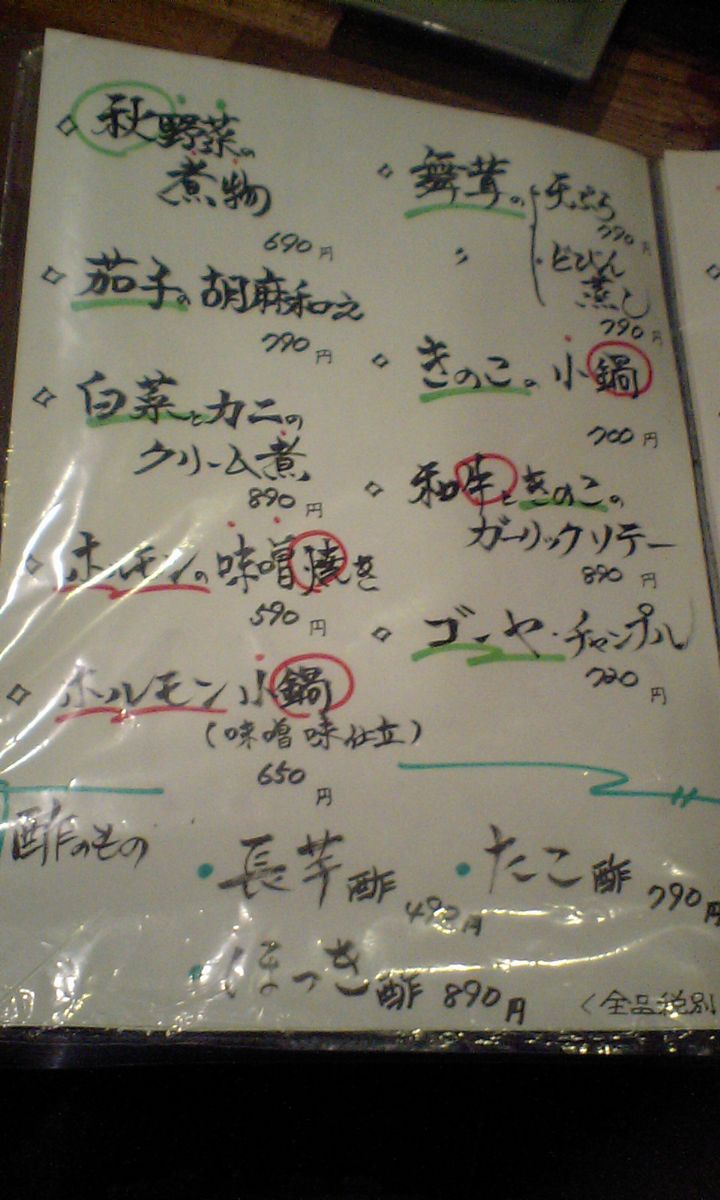 ◇秋野菜の
煮物
690円
◇茄子の胡麻和え
790円
◇白菜とカニの
クリーム煮
890円
◇ホルモンの味噌焼き
590円
◇ホルモン小鍋
(味噌味仕立)
650円
◇舞茸の天ぷら
790円
〃・どびん
蒸し
790円
◇きのこの小鍋
700円
◇和牛ときのこの
ガーリックソテー
890円
◇ゴーヤ・チャンプル
720円
酢のもの
・長芋酢 490円
・たこ酢 790円
・ほっき酢 890円
<全品税別